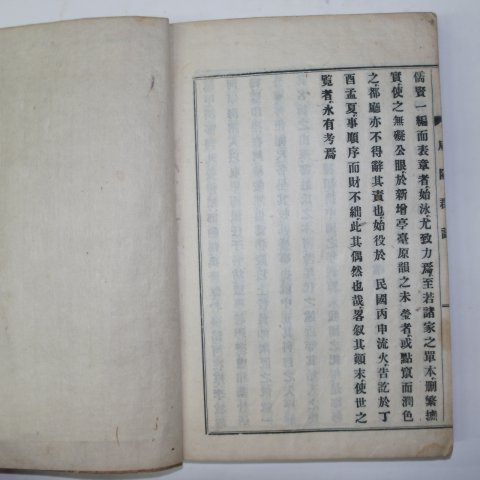 儒賢一編而表章者始泳尤致力焉至若諸家之單本刪繁摭
實使之無礙公眼於新增亭臺原韻之未瑩者或點竄而潤色
之都廳亦不得辭其責也始役於 民國丙申流火告訖於丁
酉孟夏事順序而財不絀此其偶然也哉畧叙其顚末使世之
覧者永有考焉